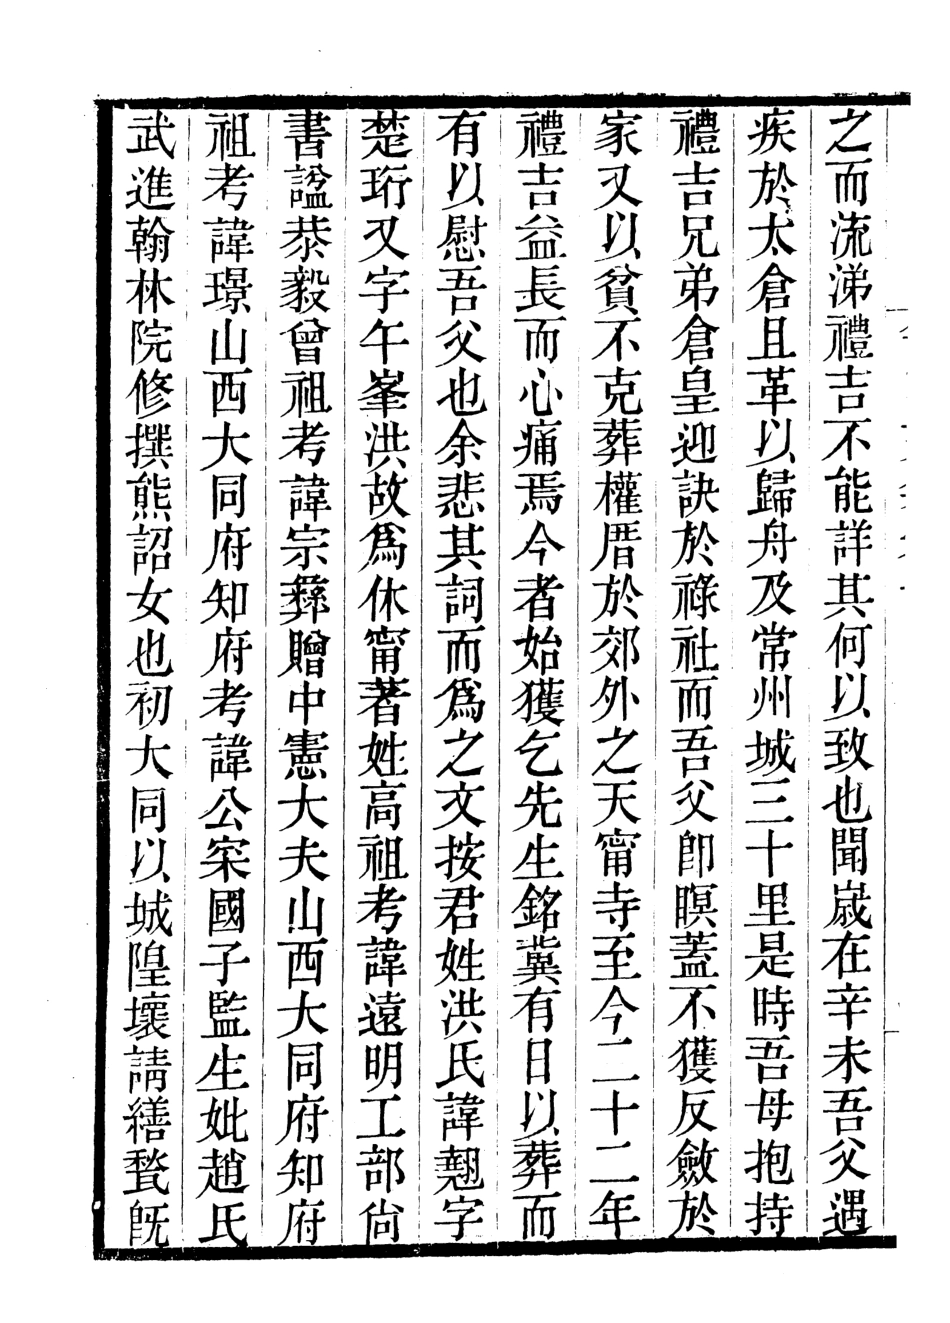 之而流涕禮吉不能詳其何以致也聞嵗在辛未吾父遇
疾於太倉且革以歸舟及常州城三十里是時吾母抱持
禮吉兄弟倉皇迎訣於祿社而吾父卽瞑蓋不獲反斂於
家又以貧不克葬權厝於郊外之天甯寺至今二十二年
禮吉益長而心痛焉今者始獲乞先生銘冀有日以葬而
有以慰吾父也余悲其詞而爲之文按君姓洪氏諱翹字
楚珩又字午峯洪故爲休甯著姓高祖考諱遠明工部尙
書諡恭毅曾祖考諱宗彝贈中憲大夫山西大同府知府
祖考諱璟山西大同府知府考諱公寀國子監生妣趙氏
武進翰林院修撰熊詔女也初大同以城隍壞請繕甃旣